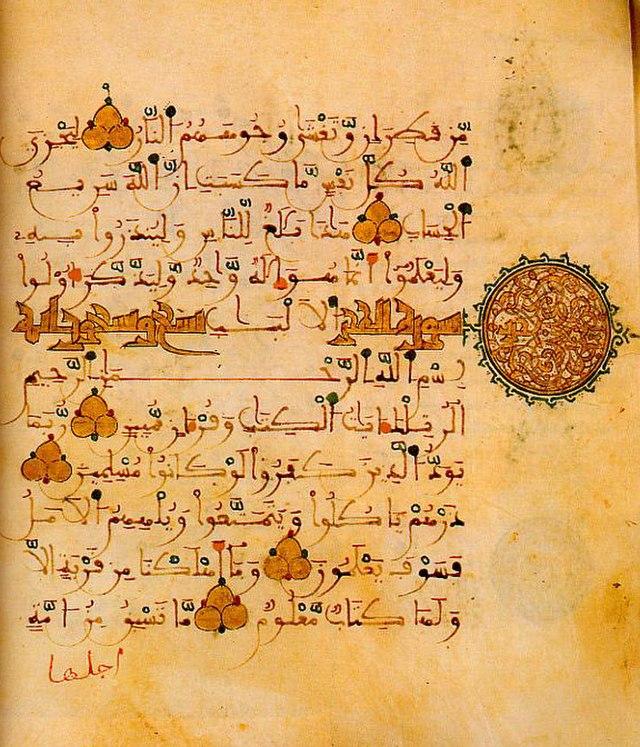 مِّن قَطِرَانٍ وَّتَغْشَى وُجُوهَهُمُ النَّارُ لِيَجْزِيَ
اللَّهُ كُلَّ نَفْسٍ مَّا كَسَبَتِ انَّ اللَّهَ سَرِيعُ
الْحِسَابِ هَذَا بَلَغٌ لِّلنَّاسِ وَلِيُنذَرُوا بِهِ
وَلِيَعْلَمُوا أَنَّمَا هُوَ إِلَهٌ وَاحِدٌ وَلِيَذَّكَّرَ أُولُوا
سورة الحجر الالْبَابِ تسع وتسعون اية
بِسْمِ اللَّهِ الرَّحْمَنِ الرَّحِيمِ
الر تِلْكَ ءَايَتُ الْكِتَبِ وَقُرْءَانٍ مُّبِينٍ رُّبَمَا
يَوَدُّ الَّذِينَ كَفَرُوا لَوْ كَانُوا مُسْلِمِينَ
ذَرْهُمْ يَاكُلُوا وَيَتَمَتَّعُوا وَيُلْهِهِمُ الامَلُ
فَسَوْفَ يَعْلَمُونَ وَمَا أَهْلَكْنَا مِن قَرْيَةٍ الاَّ
وَلَهَا كِتَابٌ مَّعْلُومٌ مَّا تَسْبِقُ مِنُ امَّةٍ
اجلها